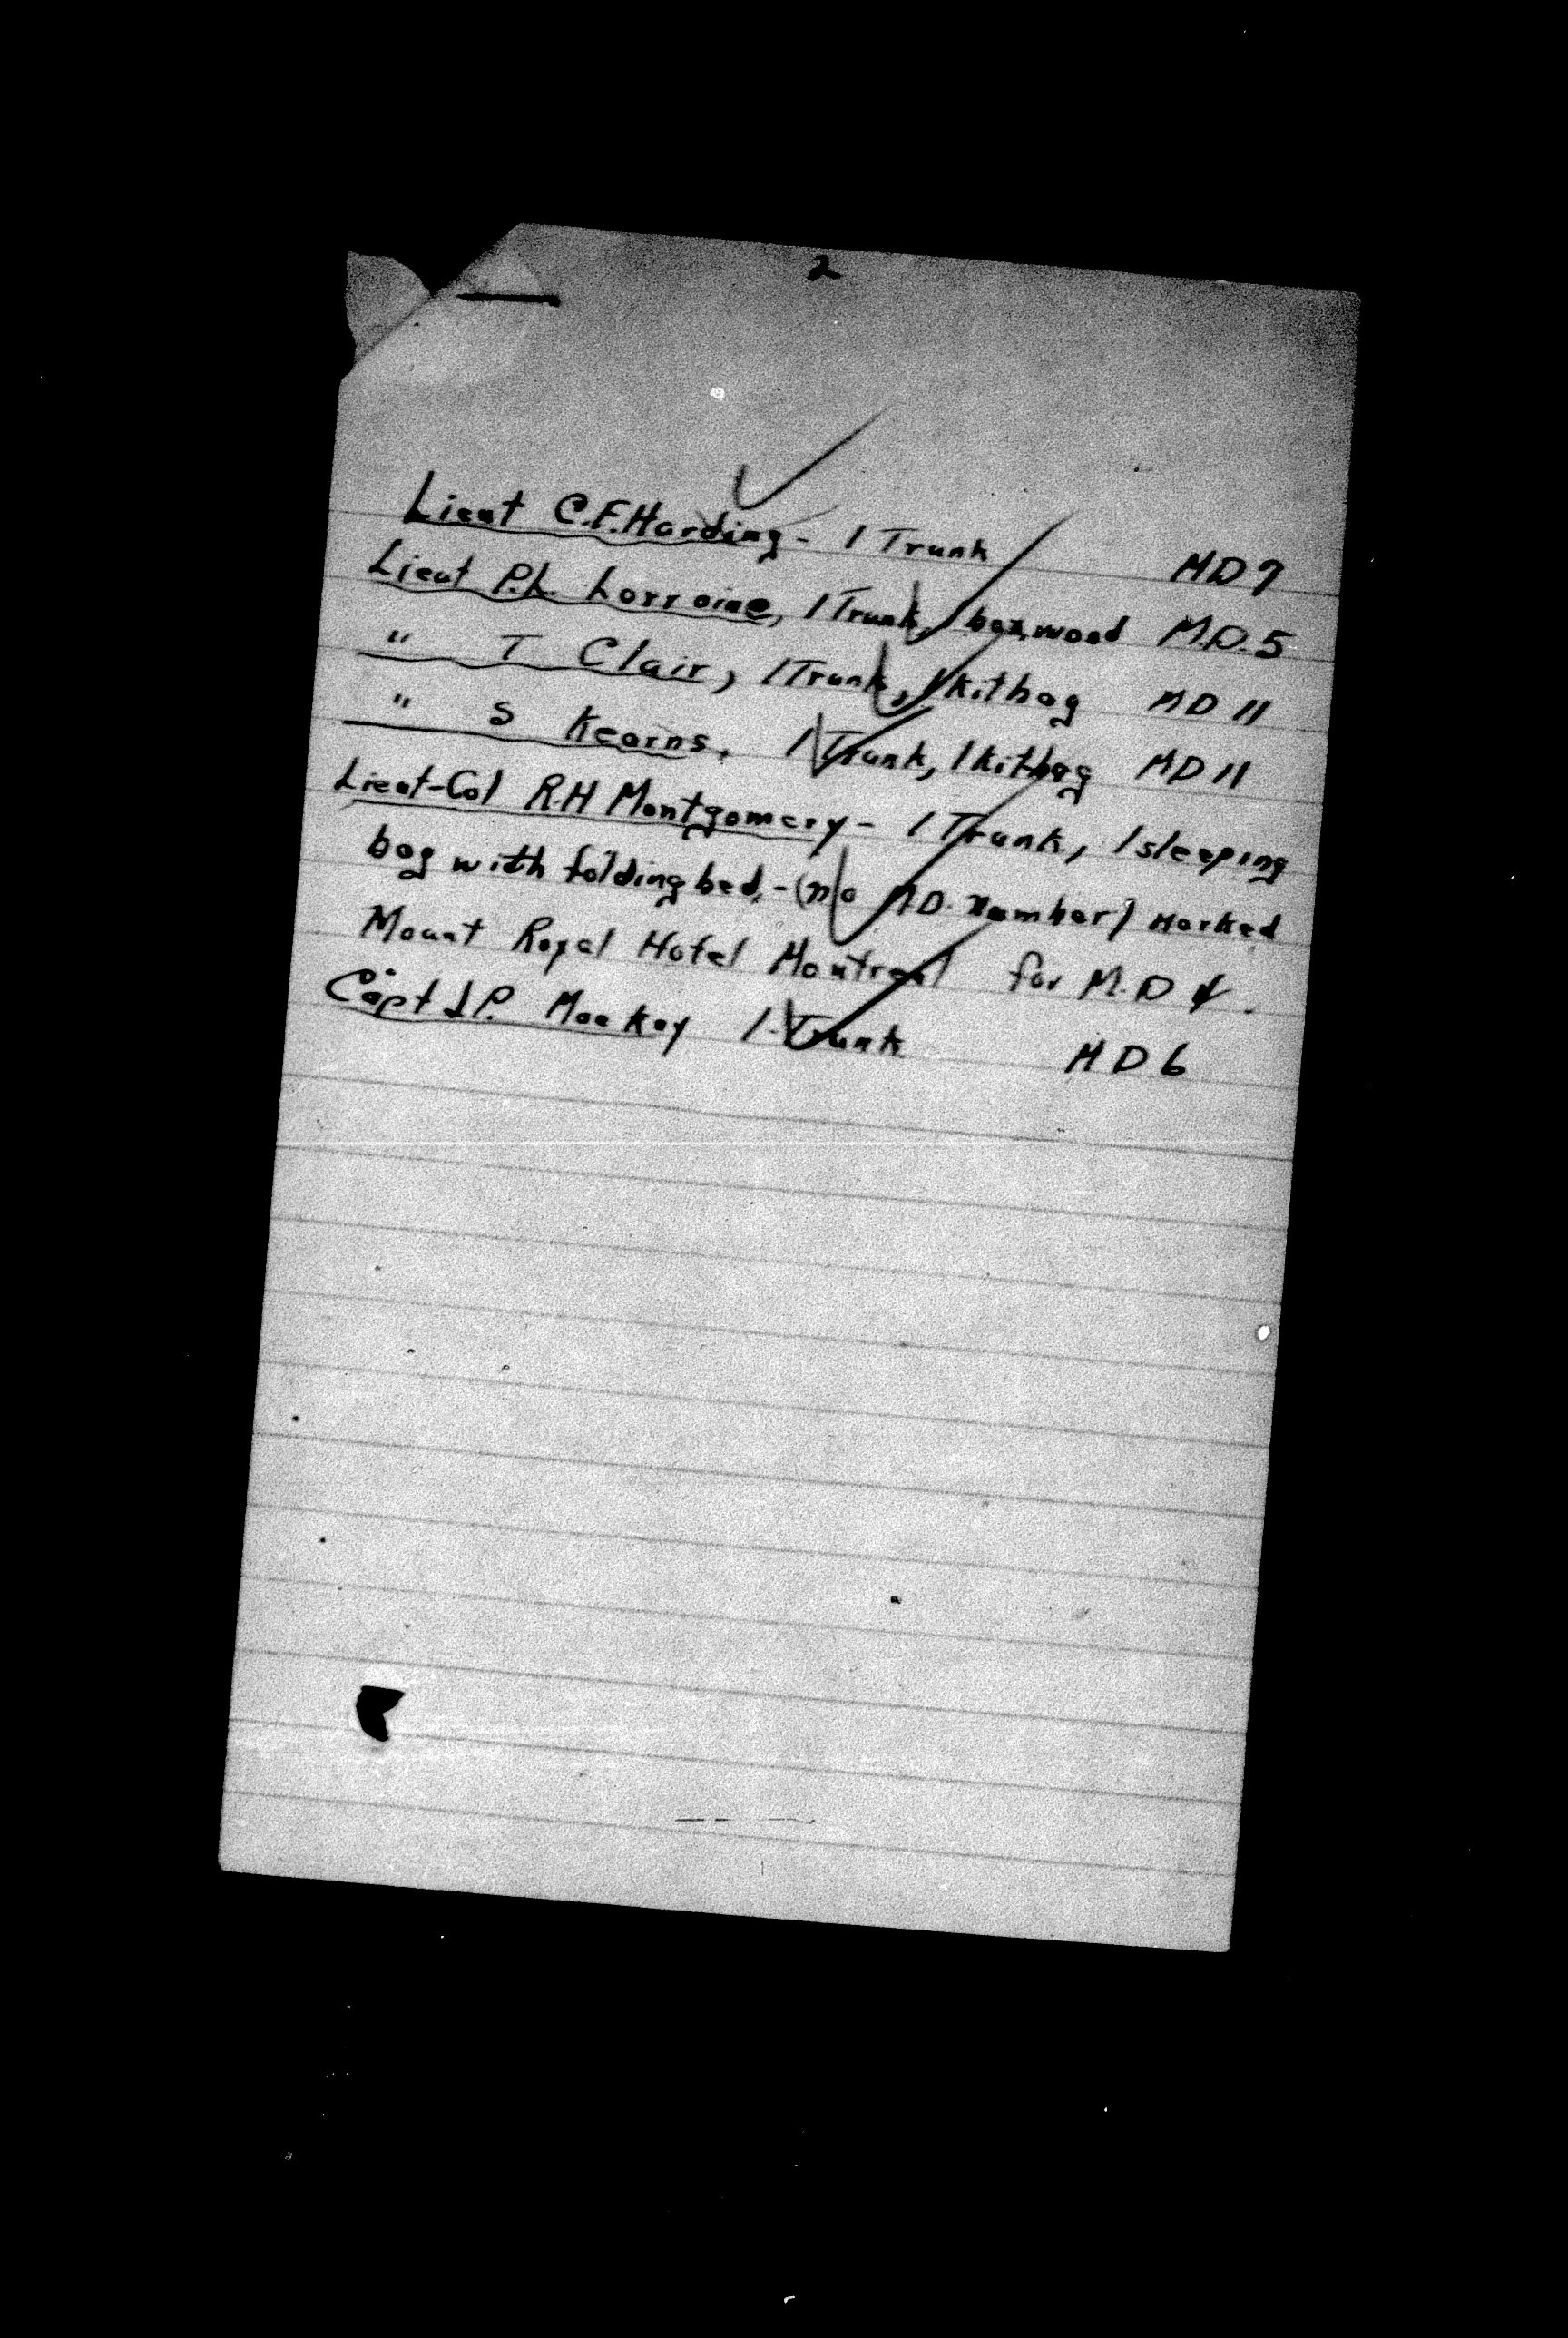 2
Lieut C.F. Harding - 1 Trunk MD 7
Lieut P.L. Lorraine, 1 Trunk, 1 box, wood M.D. 5
" T Clair, 1 Trunk, 1 kitbag MD 11
" S Kearns, 1 Trunk, 1 kitbag MD 11
Lieut-Col R.H Montgomery - 1 Trunk, 1 sleeping
bag with folding bed, - (no M.D. number) marked
Mount Royal Hotel Montreal for M.D 4.
Capt J.P. MacKay 1 Trunk MD 6